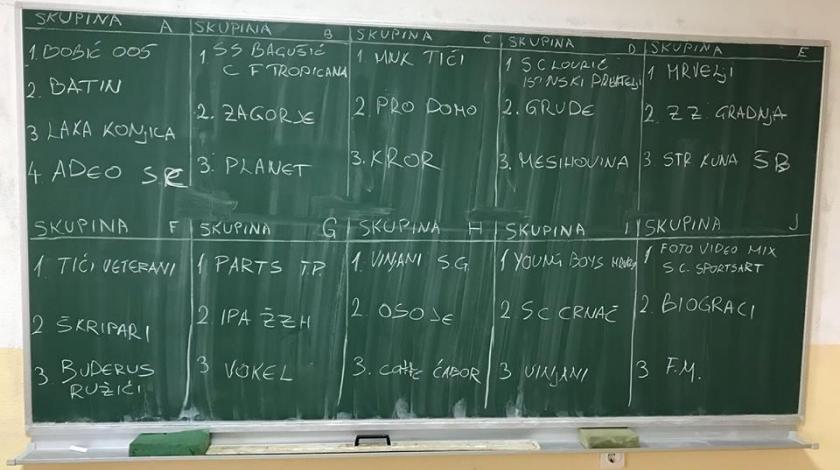 SKUPINA A
1. BOBIĆ 005
2. BATIN
3 LAKA KONJICA
4. ADEO
SKUPINA B
1. SS BAGUŠIĆ
C F TROPICANA
2. ZAGORJE
3. PLANET
SKUPINA C
1. MNK TIĆI
2 PRO DOMO
3. KROR
SKUPINA D
1 SC LOVRIĆ
2. GRUDE
3. MESIHOVINA
SKUPINA E
1 MRVELJI
2 ZZ GRADNJA
3 STR KUNA ŠB
SKUPINA F
1. TIĆI VETERANI
2 ŠKRIPARI
3 BUDERUS
RUŽIĆI
SKUPINA G
1 PARTS T.P.
2. IPA ŽZH
3 VOKEL
SKUPINA H
1. VINJANI S.G.
2. OSOJE
3. CAFFE ČABOR
SKUPINA I
1 YOUNG BOYS
2 SC CRNAČ
3 VINJANI
SKUPINA J
1 FOTO VIDEO MIX
S.C. SPORTSART
2. BIOGRACI
3 F.M.